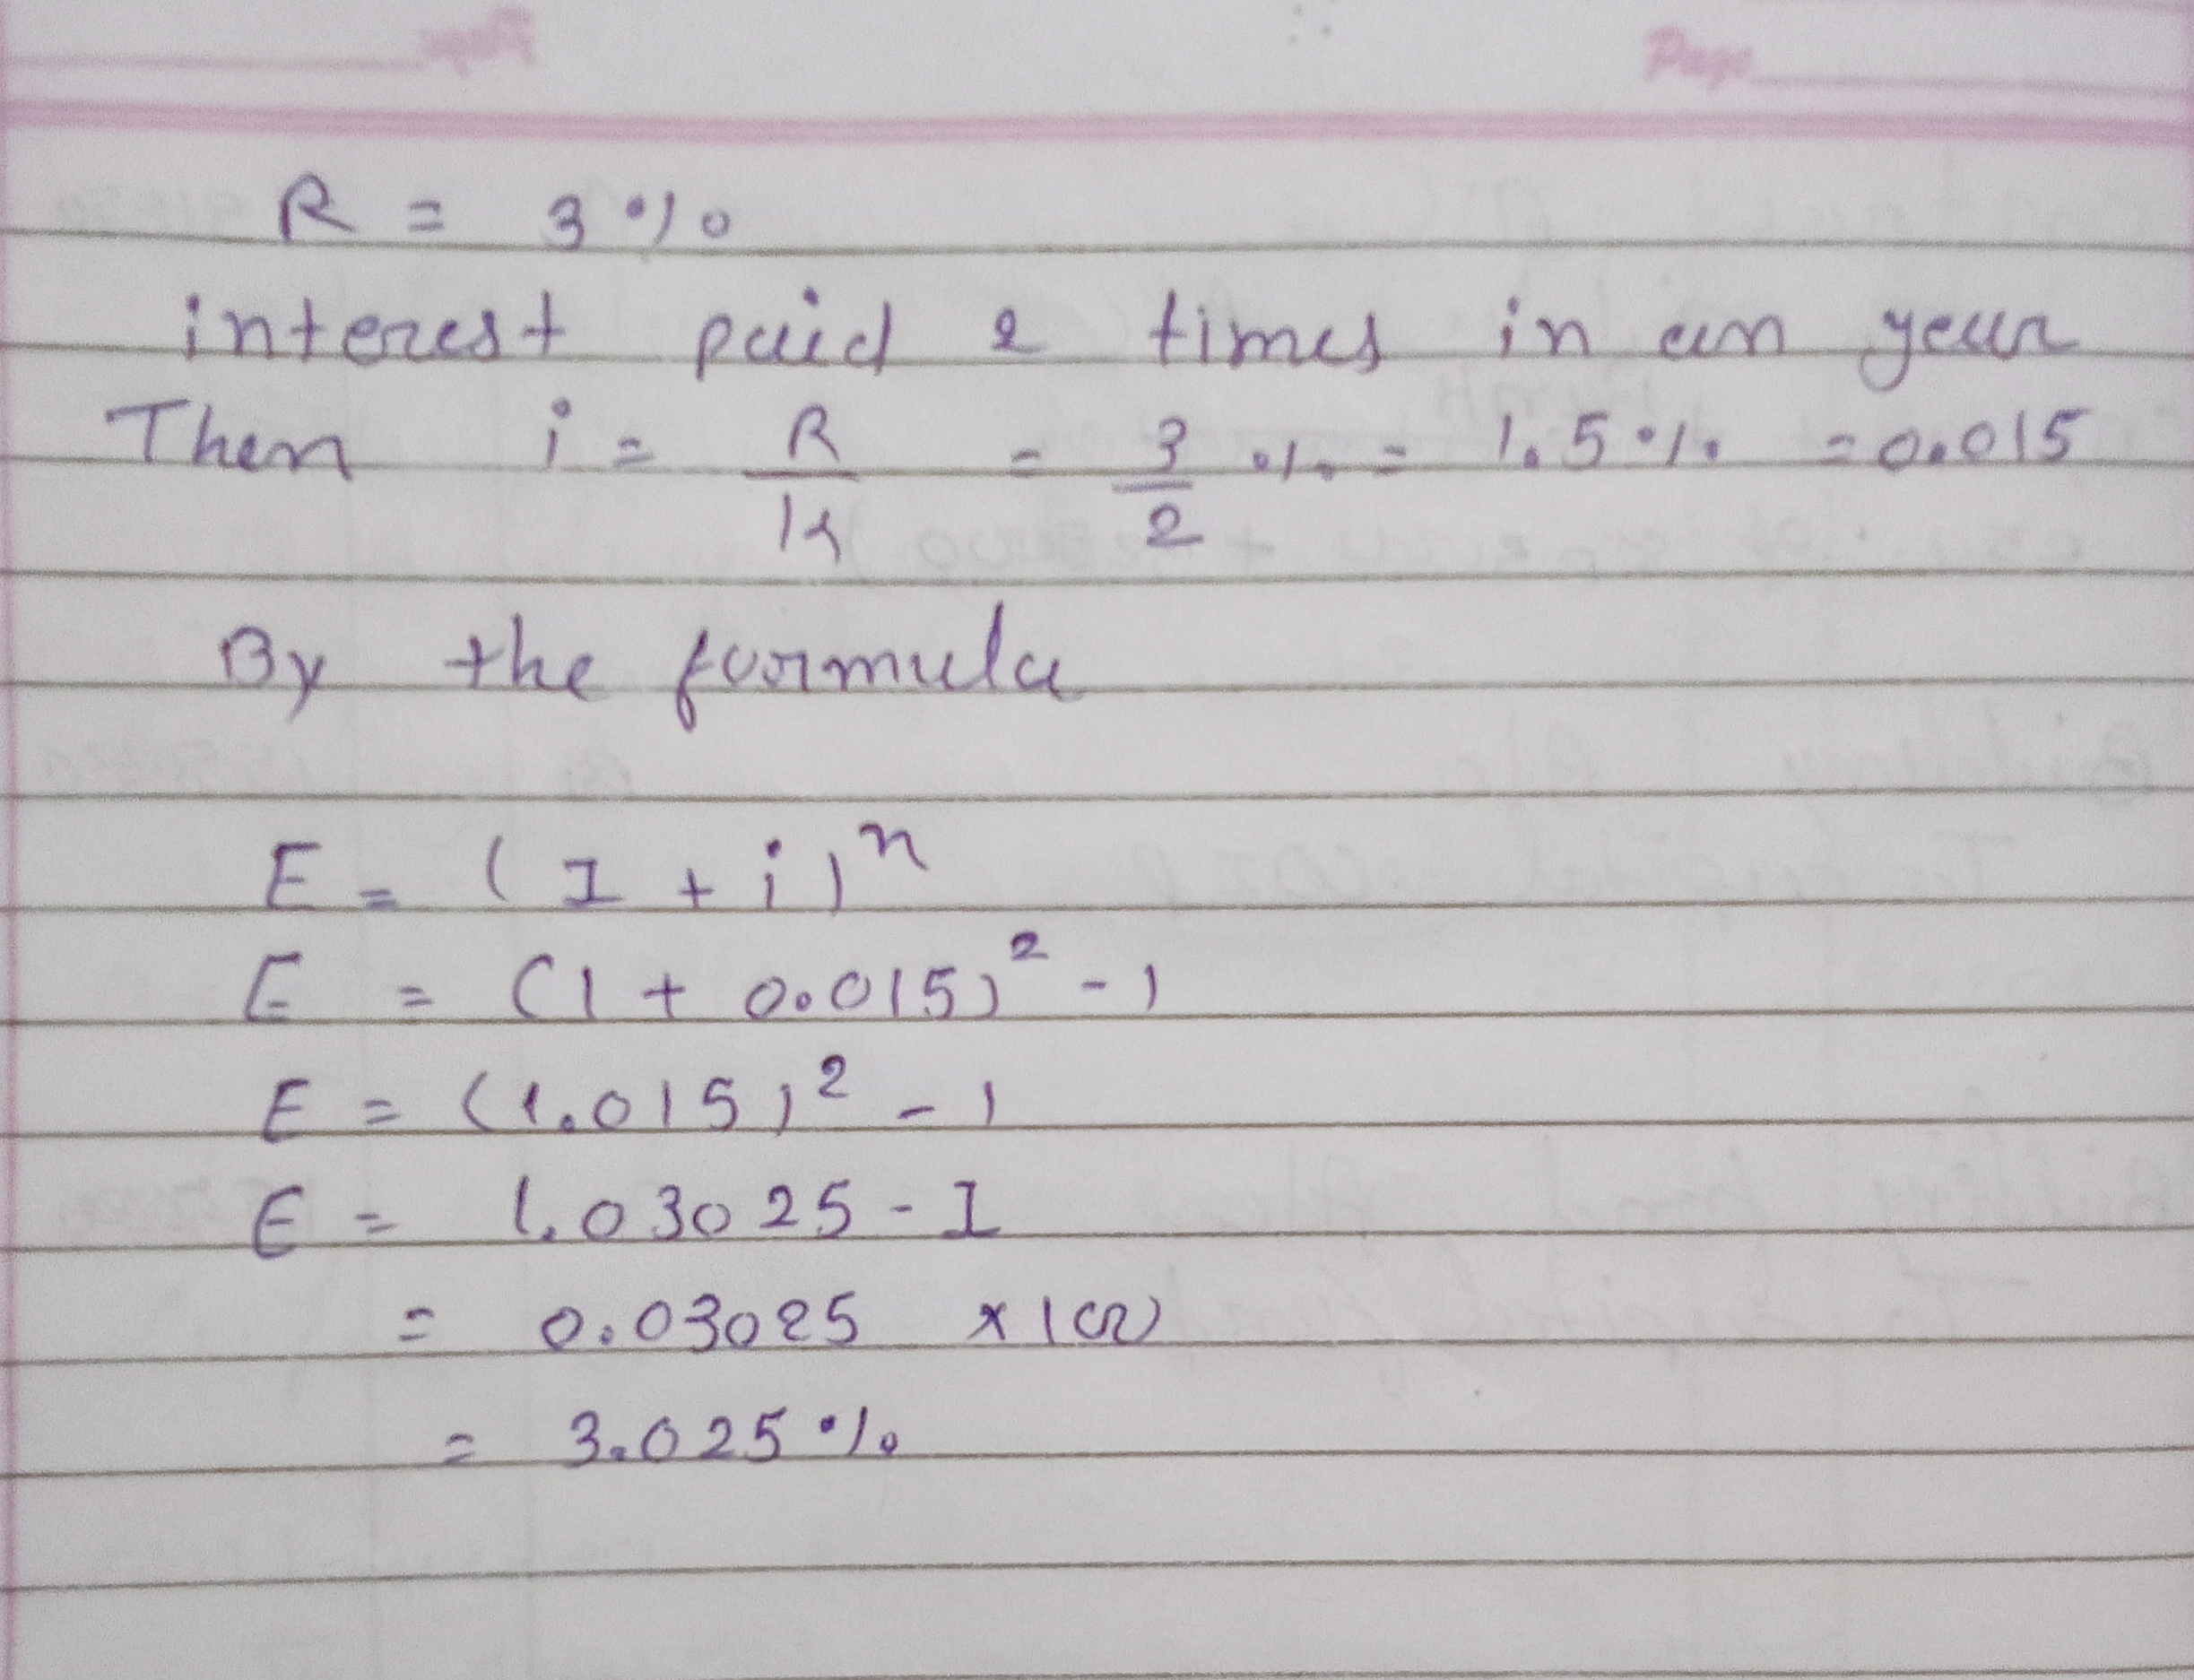 Page
R = 3%
interest paid 2 times in an year
Then i = R/K = 3/2 % = 1.5% = 0.015
By the formula
E = (I + i)^n
E = (1 + 0.015)^2 - 1
E = (1.015)^2 - 1
E = 1.03025 - I
= 0.03025 × 100
= 3.025%